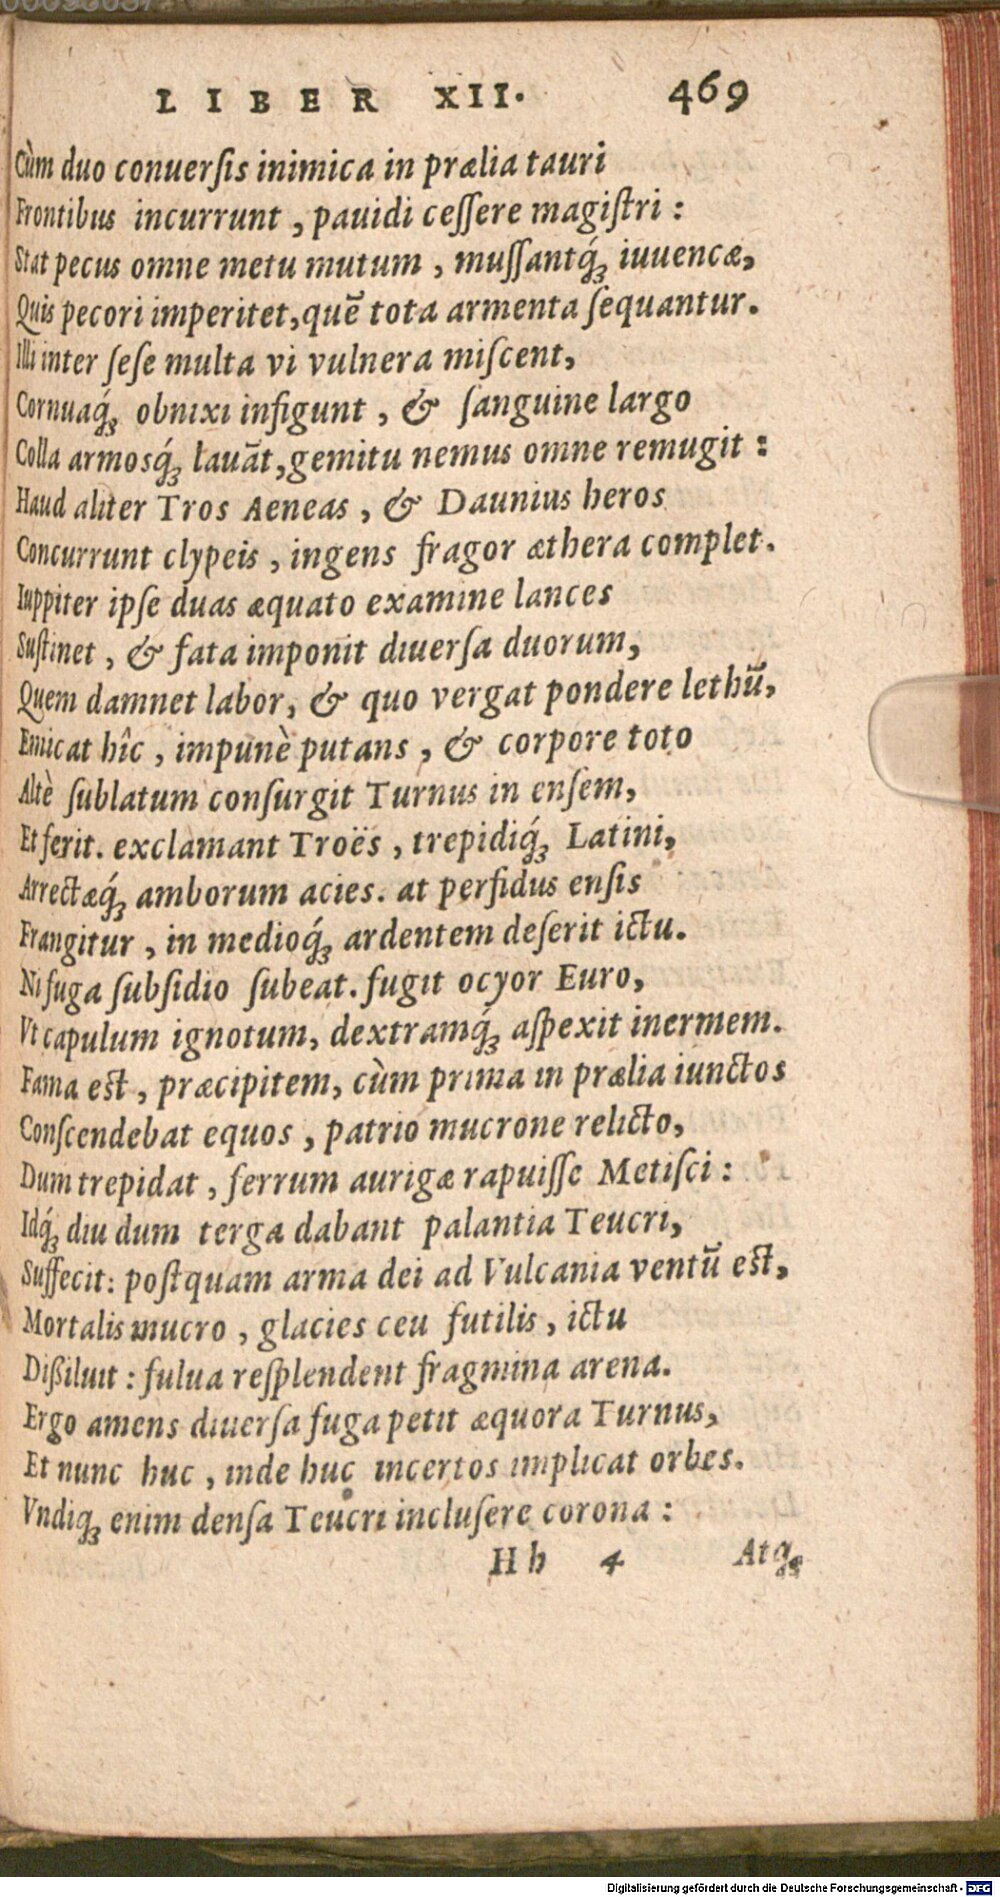 LIBER XII. 469
Cùm duo conuerſis inimica in prælia tauri
Frontibus incurrunt, pauidi ceſſere magiſtri:
Stat pecus omne metu mutum, muſſantq́ꝫ iuuencæ,
Quis pecori imperitet, quẽ tota armenta ſequantur.
Illi inter ſeſe multa vi vulnera miſcent,
Cornuaq́ꝫ obnixi infigunt, & ſanguine largo
Colla armosq́ꝫ lauãt, gemitu nemus omne remugit:
Haud aliter Tros Aeneas, & Daunius heros
Concurrunt clypeis, ingens fragor æthera complet.
Iuppiter ipſe duas æquato examine lances
Suſtinet, & fata imponit diuerſa duorum,
Quem damnet labor, & quo vergat pondere lethũ,
Emicat hîc, impunè putans, & corpore toto
Altè ſublatum conſurgit Turnus in enſem,
Et ferit. exclamant Troës, trepidiq́ꝫ Latini,
Arrectæq́ꝫ amborum acies. at perfidus enſis
Frangitur, in medioq́ꝫ ardentem deſerit ictu.
Ni fuga ſubſidio ſubeat. fugit ocyor Euro,
Vt capulum ignotum, dextramq́ꝫ aſpexit inermem.
Fama eſt, præcipitem, cùm prima in prælia iunctos
Conſcendebat equos, patrio mucrone relicto,
Dum trepidat, ferrum aurigæ rapuiſſe Metiſci:
Idq́ꝫ diu dum terga dabant palantia Teucri,
Suffecit: poſtquam arma dei ad Vulcania ventũ eſt,
Mortalis mucro, glacies ceu futilis, ictu
Dißiluit: fulua reſplendent fragmina arena.
Ergo amens diuerſa fuga petit æquora Turnus,
Et nunc huc, inde huc incertos implicat orbes.
Vndiqꝫ enim denſa Teucri incluſere corona:
Hh 4 Atqꝫ
Digitalisierung gefördert durch die Deutsche Forschungsgemeinschaft - DFG